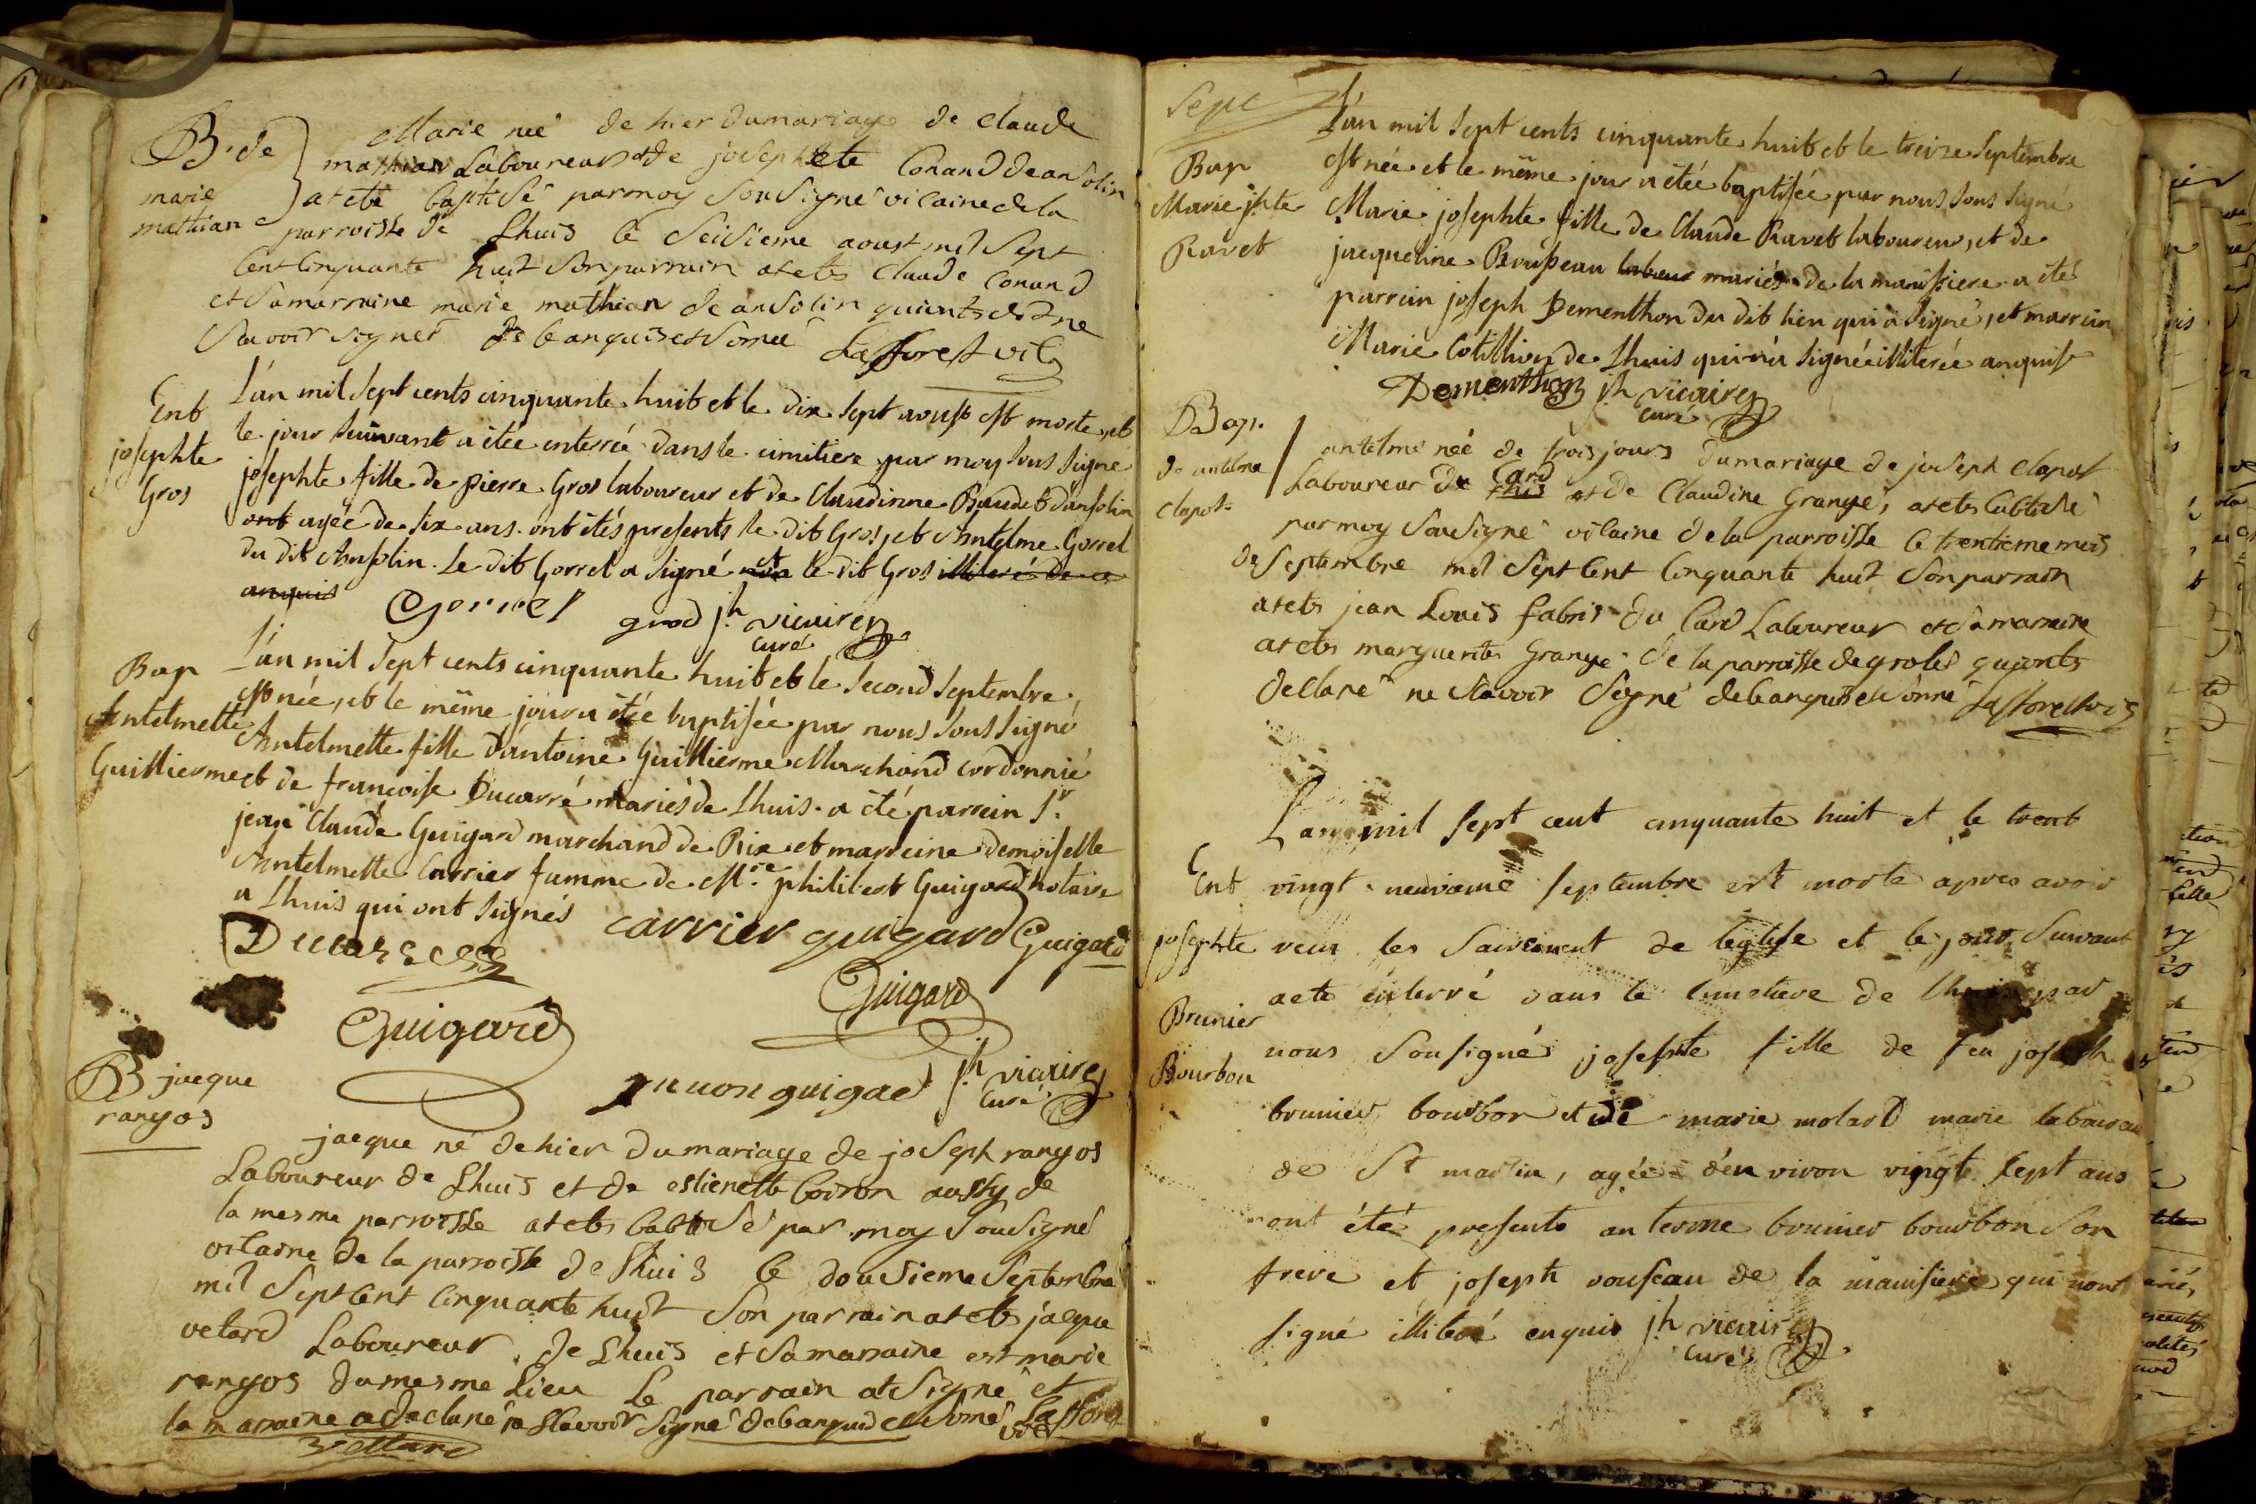 B. de
marie
mathian
Marie neé de hier du mariage de Claude
mathian Laboureur et de josephte Conand d'ansolin
at ete baptisé par moy sousigné vicaire de la
parroisse de Lhuis le seisieme aoust mil sept
cent cinquante huit son parrain at ete Claude Conand
et sa marraine marie mathian de ansolin qui ont de ne
scavoir signer de ce enquis et sommé Lafforest vic
Ent
josephte
Gros
L'an mil sept cents cinquante huit et le dix sept aoust est morte, et
le jour suivant a étée enterrée dans le cimitiere par moy sous signé
josephte fille de pierre Gros laboureur et de Claudinne Baudet d'ansolin
ont agée de six ans. ont étés presents le dit Gros, et Antelme Gorrel
du dit Ansolin. Le dit Gorrel a signé et le dit Gros illiteré de ce
anquis
Gorrel gros jh vicaire
curé
Bap
Antelmette
Guillierme
L'an mil sept cents cinquante huit et le second septembre
est née, et le même jour a étée baptisée par nous sous signé
Antelmette fille d'antoine Guillierme Marchand cordonnié
et de francoise Ducarré mariés de Lhuis. a été parrein Sr.
jean Claude Guigard marchand de Rix et marreine demoiselle
Antelmette Carrier famme de Mre philibert Guigard notaire
a Lhuis qui ont signés
Ducarre carrier guigard Guigard
Guigard Guigard
guigard jh vicaire
curé
B jacque
rangos
jacque né de hier du mariage de joseph rangos
Laboureur de Lhuis et de estienette Coiron aussy de
la mesme parroisse at ete babtisé par moy sousigné
vicaire de la parroisse de Lhuis le dousieme Septembre
mil Sept Cent Cinquante huit Son parrain at ete jacque
vetard Laboureur de Lhuis et sa marraine est marie
rangos du mesme Lieu le parrain at signé et
la marraine a declaré ne scavoir signé de ce anquis et somé Lafforest
vic
Sept
Bap
Marie jphte
Ravet
L'an mil sept cents cinquante huit et le treize septembre
est née et le même jour a étée baptisée par nous sous signé
Marie josephte fille de Claude Ravet laboureur, et de
jacqueline Rousseau mariés de la manissiere a été
parrein joseph Dementhon du dit lieu qui a signé, et marrein
Marie Cotillion de Lhuis qui n'a signée illiterée anquise
Dementhon jh vicaire
curé
Bap.
de antelme
Clapot
antelme neé de trois jours du mariage de joseph Clapot
Laboureur du Card et de Claudine Grangé, at ete babtisé
par moy sousigné vicaire de la parroisse le trentieme mois
de Septembre mil Sept Cent Cinquante huit Son parrain
at ete jean Louis fabris du Card Laboureur et sa marraine
at ete marguerite Grangé de la parroisse de groleé qui onts
declaré ne scavoir Signé de ce anquis et somé Lafforest vic
Ent
josephte
Brunier
Bourbon
L'an mil sept cent cinquante huit et le trent
vingt neuvieme septembre est morte apres avoir
receu les Sacrement de leglise et le jour Suivant
a ete enterré dans le cimetiere de Lhuis par
nous Sousigné josephte fille de feu joseph
brunier bourbon et de marie molard marie laboureur
de St martin, agée d'en viron vingt sept ans
ont été presents anterme brunier bourbon Son
frere et joseph rouseau de la manisiere qui n'ont
signé illiteré enquis jh vicaire
curé